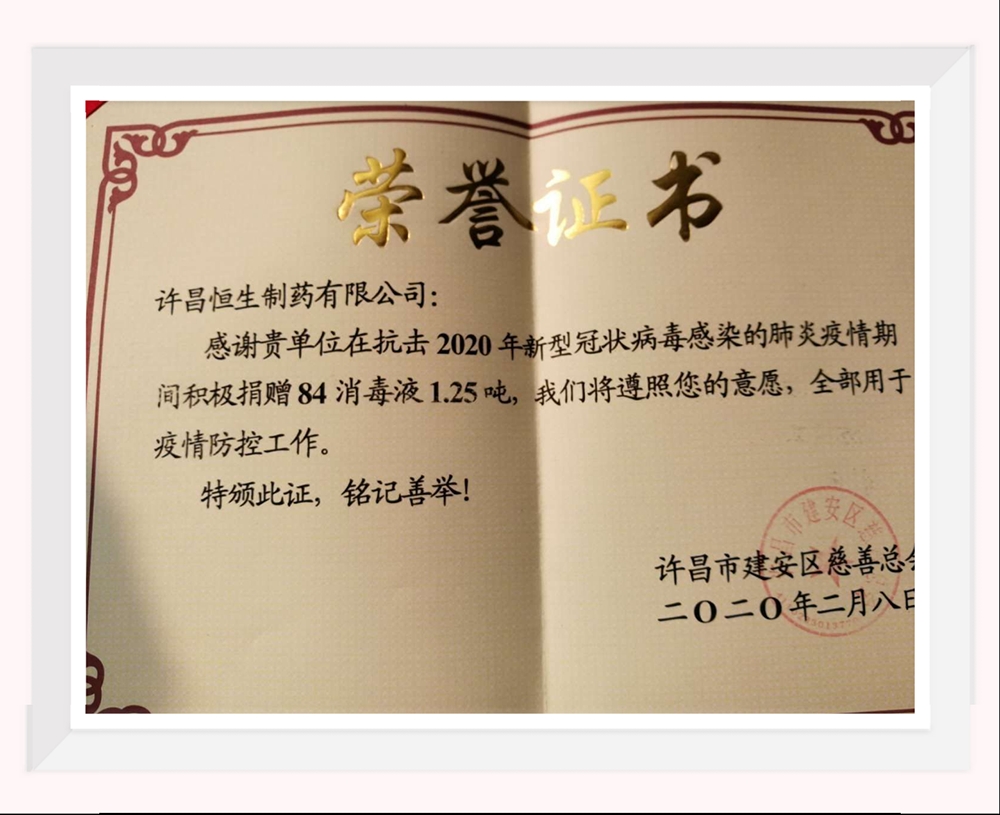 荣誉证书
许昌恒生制药有限公司：
感谢贵单位在抗击2020年新型冠状病毒感染的肺炎疫情期
间积极捐赠84消毒液1.25吨，我们将遵照您的意愿，全部用于
疫情防控工作。
特颁此证，铭记善举！
许昌市建安区慈善总会
二〇二〇年二月八日